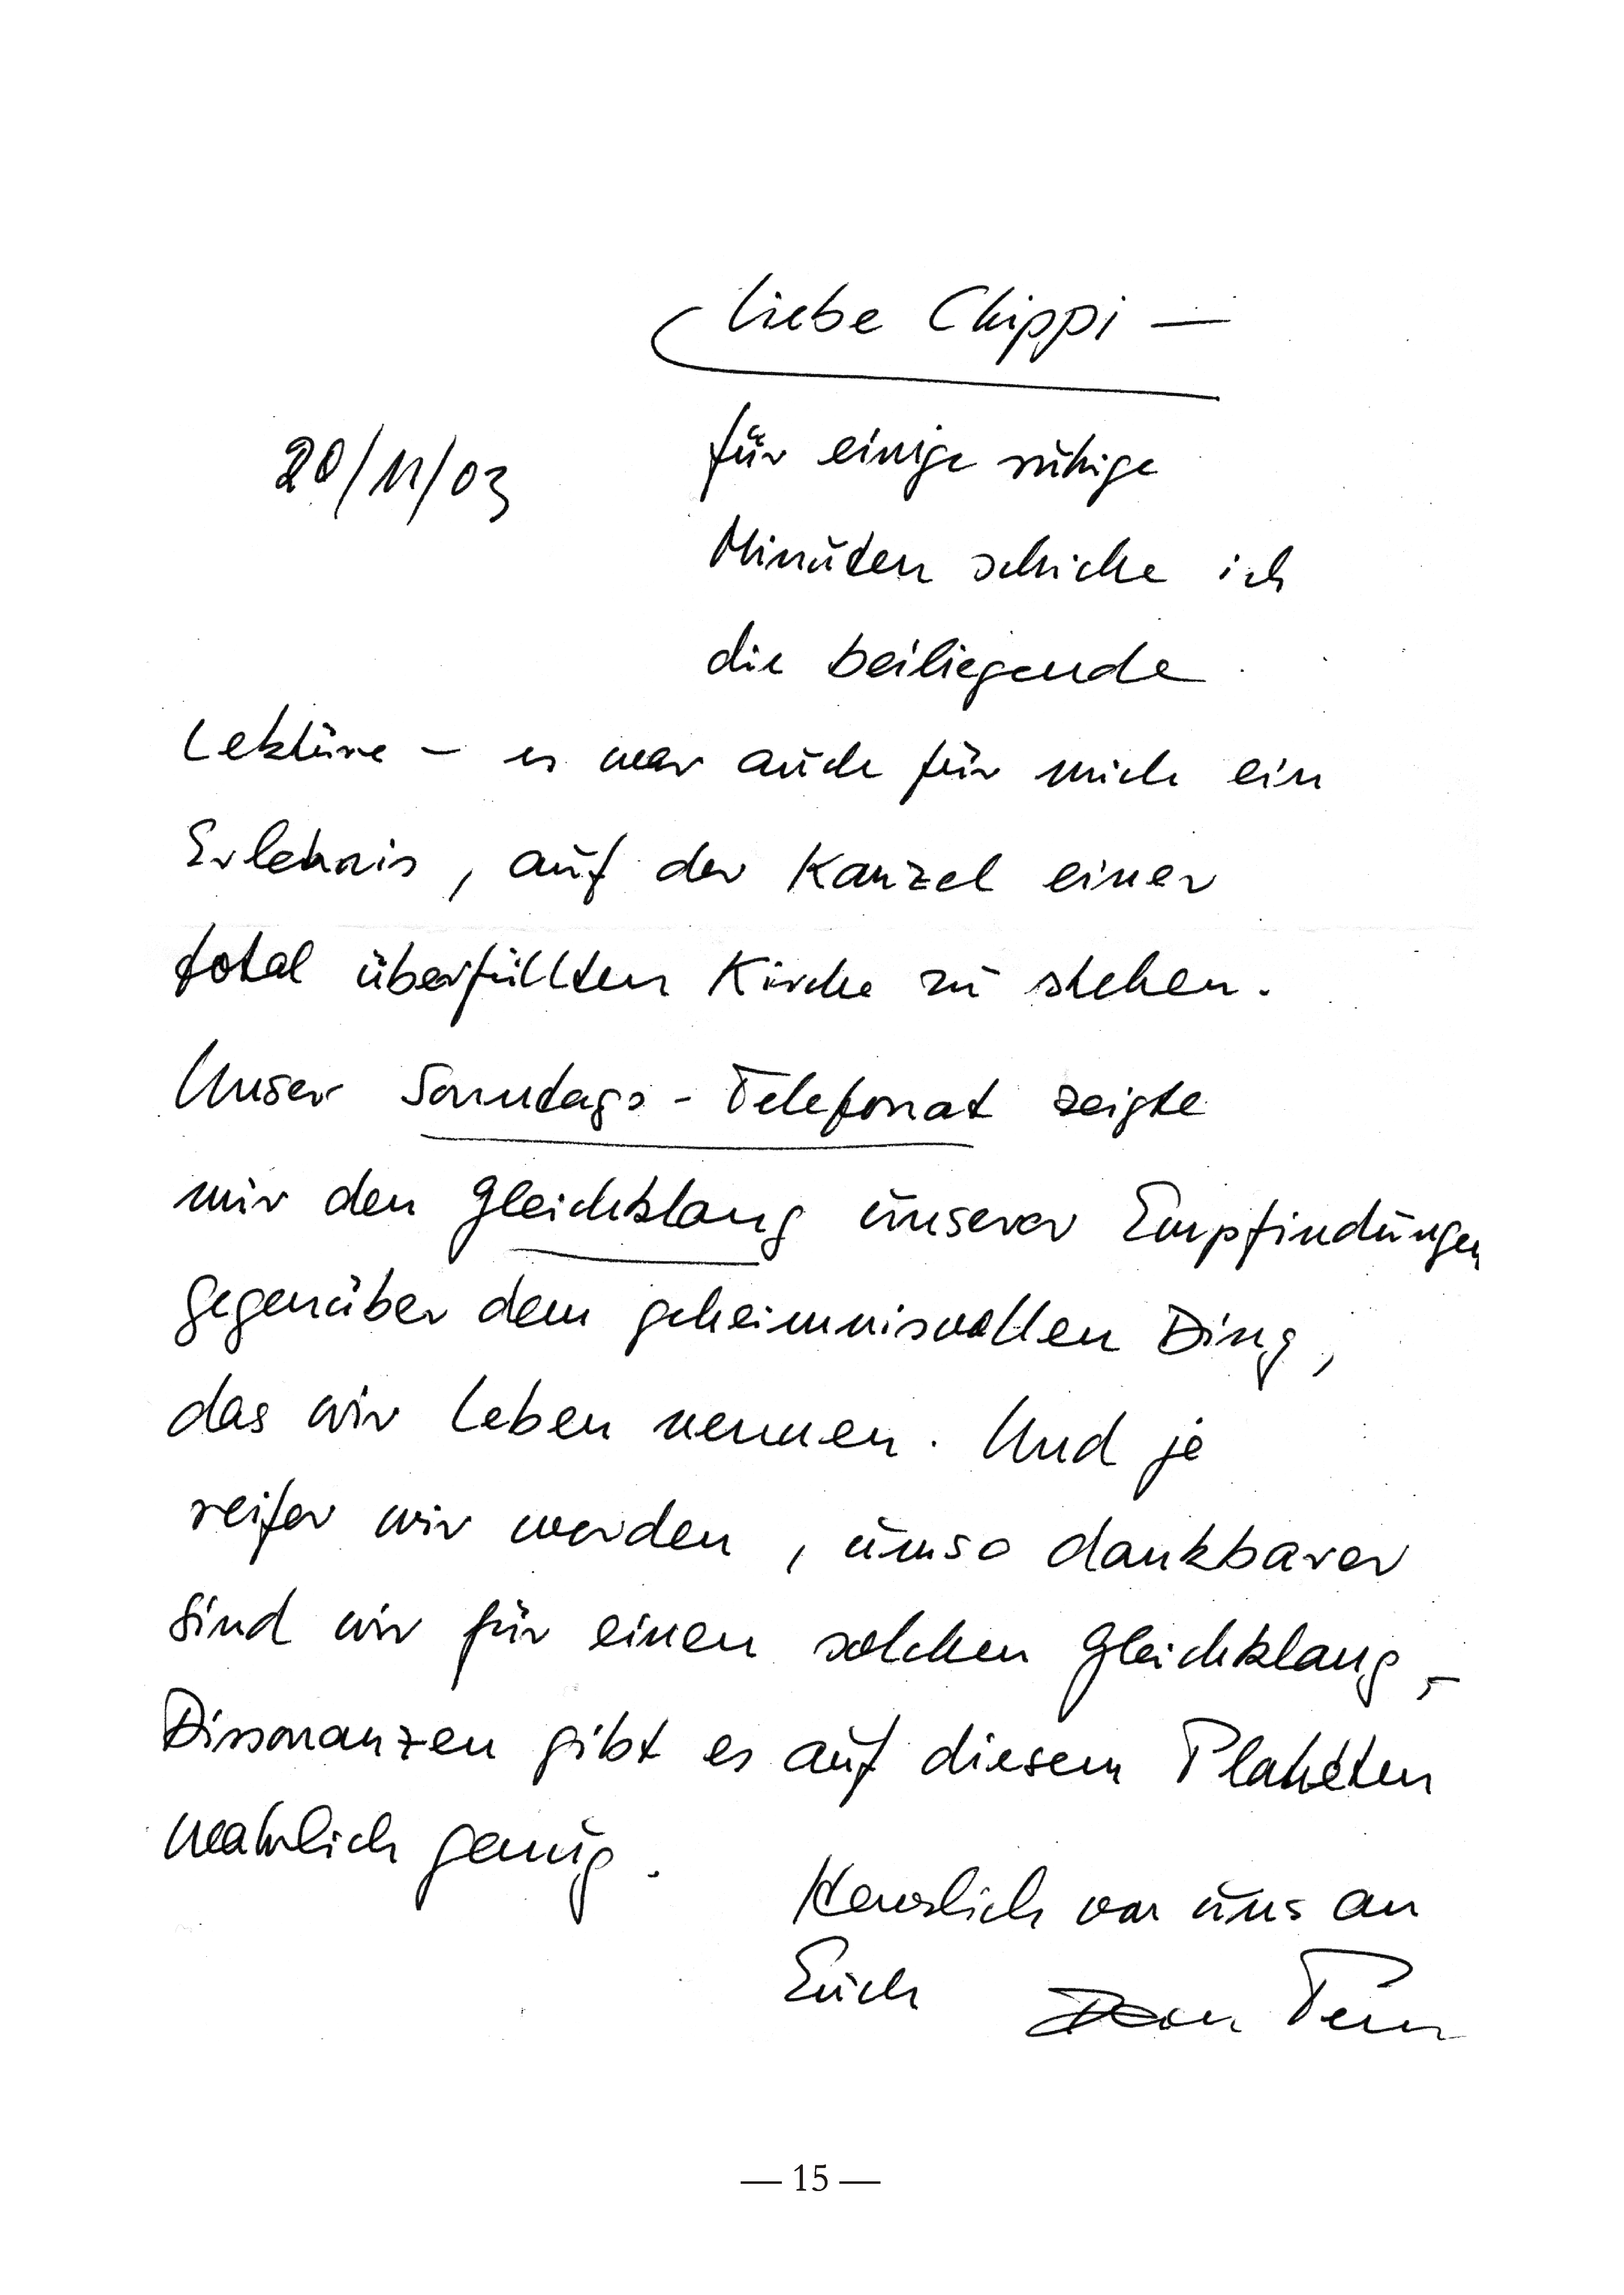 Liebe Chippi —
20/11/03
für einige ruhige
Minuten schicke ich
die beiliegende
Lektüre – es war auch für mich ein
Erlebnis, auf der Kanzel einer
total überfüllten Kirche zu stehen.
Unser Sonntags-Telefonat zeigte
mir den Gleichklang unserer Empfindungen
gegenüber dem geheimnisvollen Ding,
das wir Leben nennen. Und je
reifer wir werden, umso dankbarer
sind wir für einen solchen Gleichklang, –
Dissonanzen gibt es auf diesem Planeten
wahrlich genug.
Herzlich von uns an
Euch
— 15 —